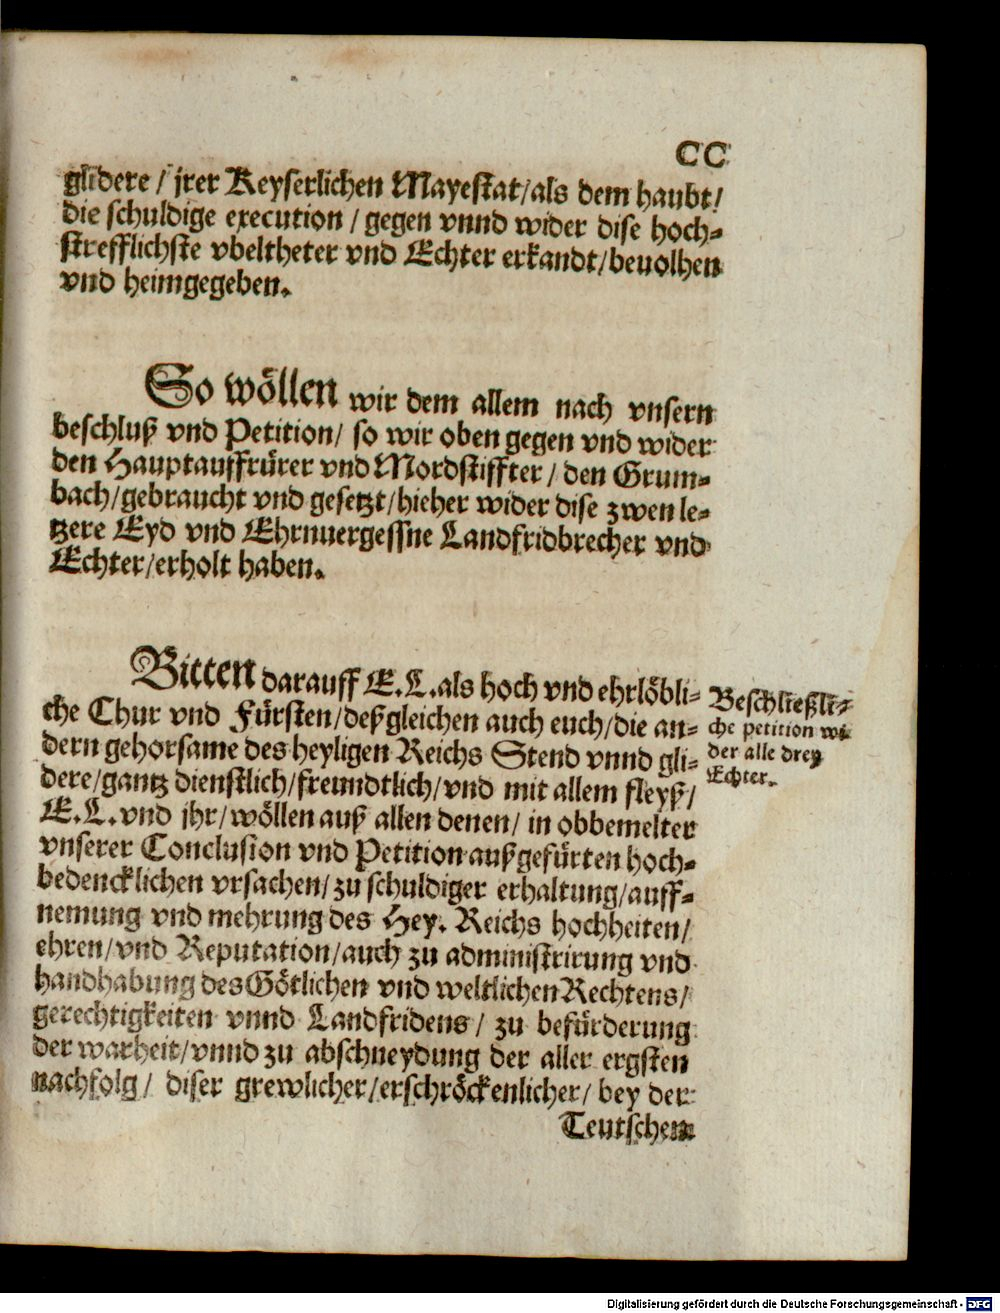 CC
glidere / jrer Keyserlichen Mayestat/als dem haubt/
die schuldige execution / gegen vnnd wider dise hoch-
strefflichste vbeltheter vnd Echter erkandt/beuolhen
vnd heimgegeben.
So wöllen wir dem allem nach vnsern
beschluß vnd Petition/ so wir oben gegen vnd wider
den Hauptauffrürer vnd Mordstiffter / den Grum-
bach/gebraucht vnd gesetzt/hieher wider dise zwen le-
tzere Eyd vnd Ehrnuergessne Landfridbrecher vnd
Echter/erholt haben.
Bitten darauff E.L.als hoch vnd ehrlöbli-
che Chur vnd Fürsten/deßgleichen auch euch/die an-
dern gehorsame des heyligen Reichs Stend vnnd gli-
dere/gantz dienstlich/freundtlich/vnd mit allem fleyß/
E.L.vnd jhr/wöllen auß allen denen/ in obbemelter
vnserer Conclusion vnd Petition außgefürten hoch-
bedencklichen vrsachen/zu schuldiger erhaltung/auff-
nemung vnd mehrung des Hey. Reichs hochheiten/
ehren/vnd Reputation/auch zu administrirung vnd
handhabung des Götlichen vnd weltlichen Rechtens/
gerechtigkeiten vnnd Landfridens / zu befürderung
der warheit/vnnd zu abschneydung der aller ergsten
nachfolg/ diser grewlicher/erschröckenlicher/ bey der
Teutschen
Beschließli-
che petition wi-
der alle drey
Echter.
Digitalisierung gefördert durch die Deutsche Forschungsgemeinschaft - DFG